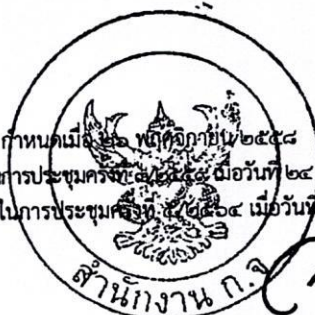 กำหนดเมื่อ ๒๖ พฤศจิกายน ๒๕๕๘
การประชุมครั้งที่ ๘/๒๕๕๙ เมื่อวันที่ ๒๔
ในการประชุมครั้งที่ ๕/๒๕๖๔ เมื่อวันที่
สำนักงาน ก.จ